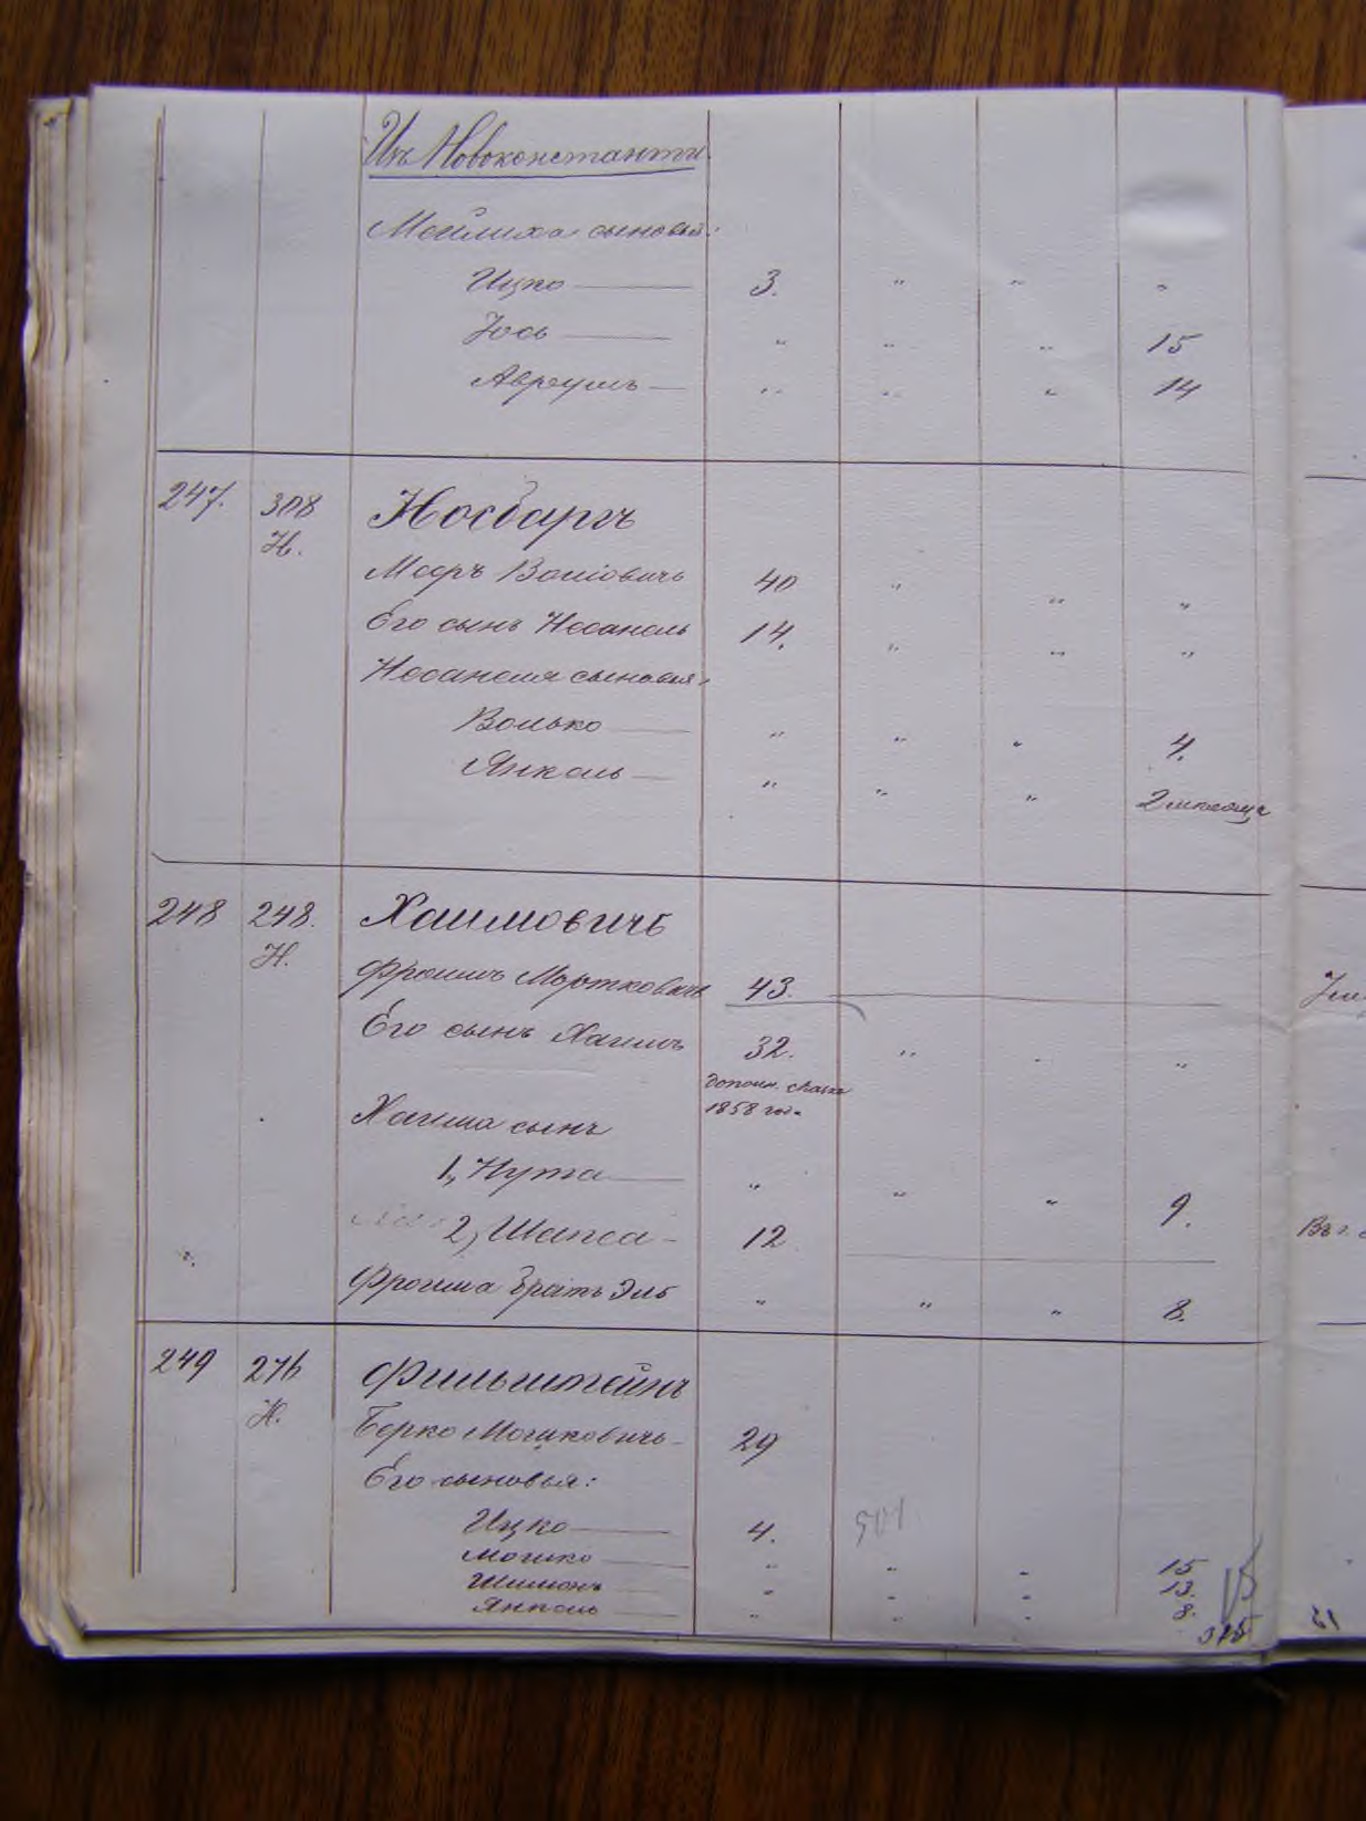 Изъ Новоконстанти.
Мейлиха сыновья:
Ицко — 3. " " "
Іось — " " " 15
Авреумъ — " " " 14
247. 308 Носбаргъ
Н.
Мееръ Волковичъ 40 " " "
Его сынъ Несанель 14. " " "
Несанеля сыновья:
Волько — " " " 4.
Янкель — " " " 2 месяца
248 248. Хаимовичъ
Н.
Фроимъ Мортковичъ 43. —
Его сынъ Хаимъ 32. " " "
дополн. сказк
1858 год.
Хаима сынъ
1, Нута — " " " 9.
2, Шапса - 12 —
Фроима братъ Эль " " " 8.
249 276 Фильштейнъ
Н.
Берко Мошковичъ 29
Его сыновья:
Ицко — 4.
Мошко — " " " 15
Шимонъ — " " " 13.
Янкель — " " " 8.